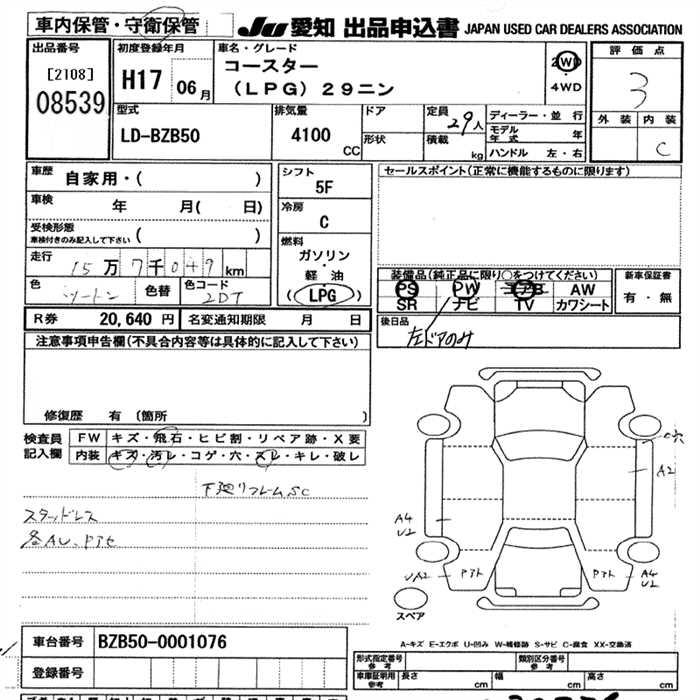 車内保管・守衛保管
JU 愛知 出品申込書 JAPAN USED CAR DEALERS ASSOCIATION
出品番号
[2108]
08539
初度登録年月
H17 06月
車名・グレード
コースター
(LPG) 29ニン
2WD
4WD
評価点
3
外装 内装
C
型式
LD-BZB50
排気量
4100
CC
ドア
形状
定員 29人
積載 kg
ディーラー・並行
モデル年式 年
ハンドル 左・右
車歴
自家用・( )
車検
年 月( 日)
受検形態
車検付きのみ記入して下さい ( )
走行
15万7千047km
色
ツートン
色替
色コード
2DT
シフト
5F
冷房
C
燃料
ガソリン
軽油
(LPG)
R券 20,640円 名変通知期限 月 日
セールスポイント(正常に機能するものに限ります)
装備品(純正品に限り○をつけてください)
PS PW エアB AW
SR ナビ TV カワシート
新車保証書
有・無
後日品
左ドアのみ
注意事項申告欄(不具合内容等は具体的に記入して下さい)
修復歴 有 (箇所 )
検査員記入欄
FW キズ・飛石・ヒビ割・リペア跡・X要
内装 キズ・汚レ・コゲ・穴・スレ・キレ・破レ
スタッドレス
穴
A2
A4
U2
UA2
A4
U2
スペア
A-キズ E-エクボ U-凹み W-補修跡 S-サビ C-腐食 XX-交換済
車台番号 BZB50-0001076
登録番号
形式指定番号
参考
類別区分番号
参考
車庫証明用
参考
長さ cm 幅 cm 高さ cm